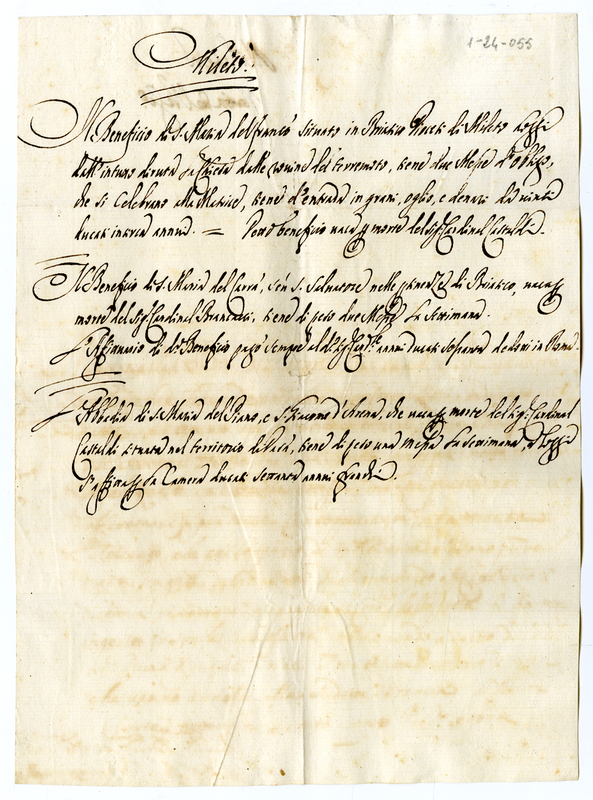 1-24-055
Mileto.
Il Beneficio di S. Maria del franco situato in Briatico Diocesi di Mileto
dall'intuto diruta la Chiesa dalle rovine del terremoto, tiene due Messe d'obligo,
che si Celebrano alla Matrice, tiene d'entrada in grani, oglio, e denari
ducati annui. = Detto beneficio vaca p morte del Sig.r Cardinal Castaldi.
Il Beneficio di S. Maria del S. Salvatore nelle di Briatico, vaca p
morte del Sig.r Cardinal Brancacci, tiene di peso due Messe la Settimana.
di d.o Beneficio pagò sempre al d.o Sig.r annui ducati sessanta in Roma.
L'Abbadia di S. Maria del Piano, e S. Giacomo d'Arena, che vaca p morte del Sig.r Cardinal
Castaldi situata nel territorio di tiene di peso una Messa la Settimana,
la Camera ducati settanta annui